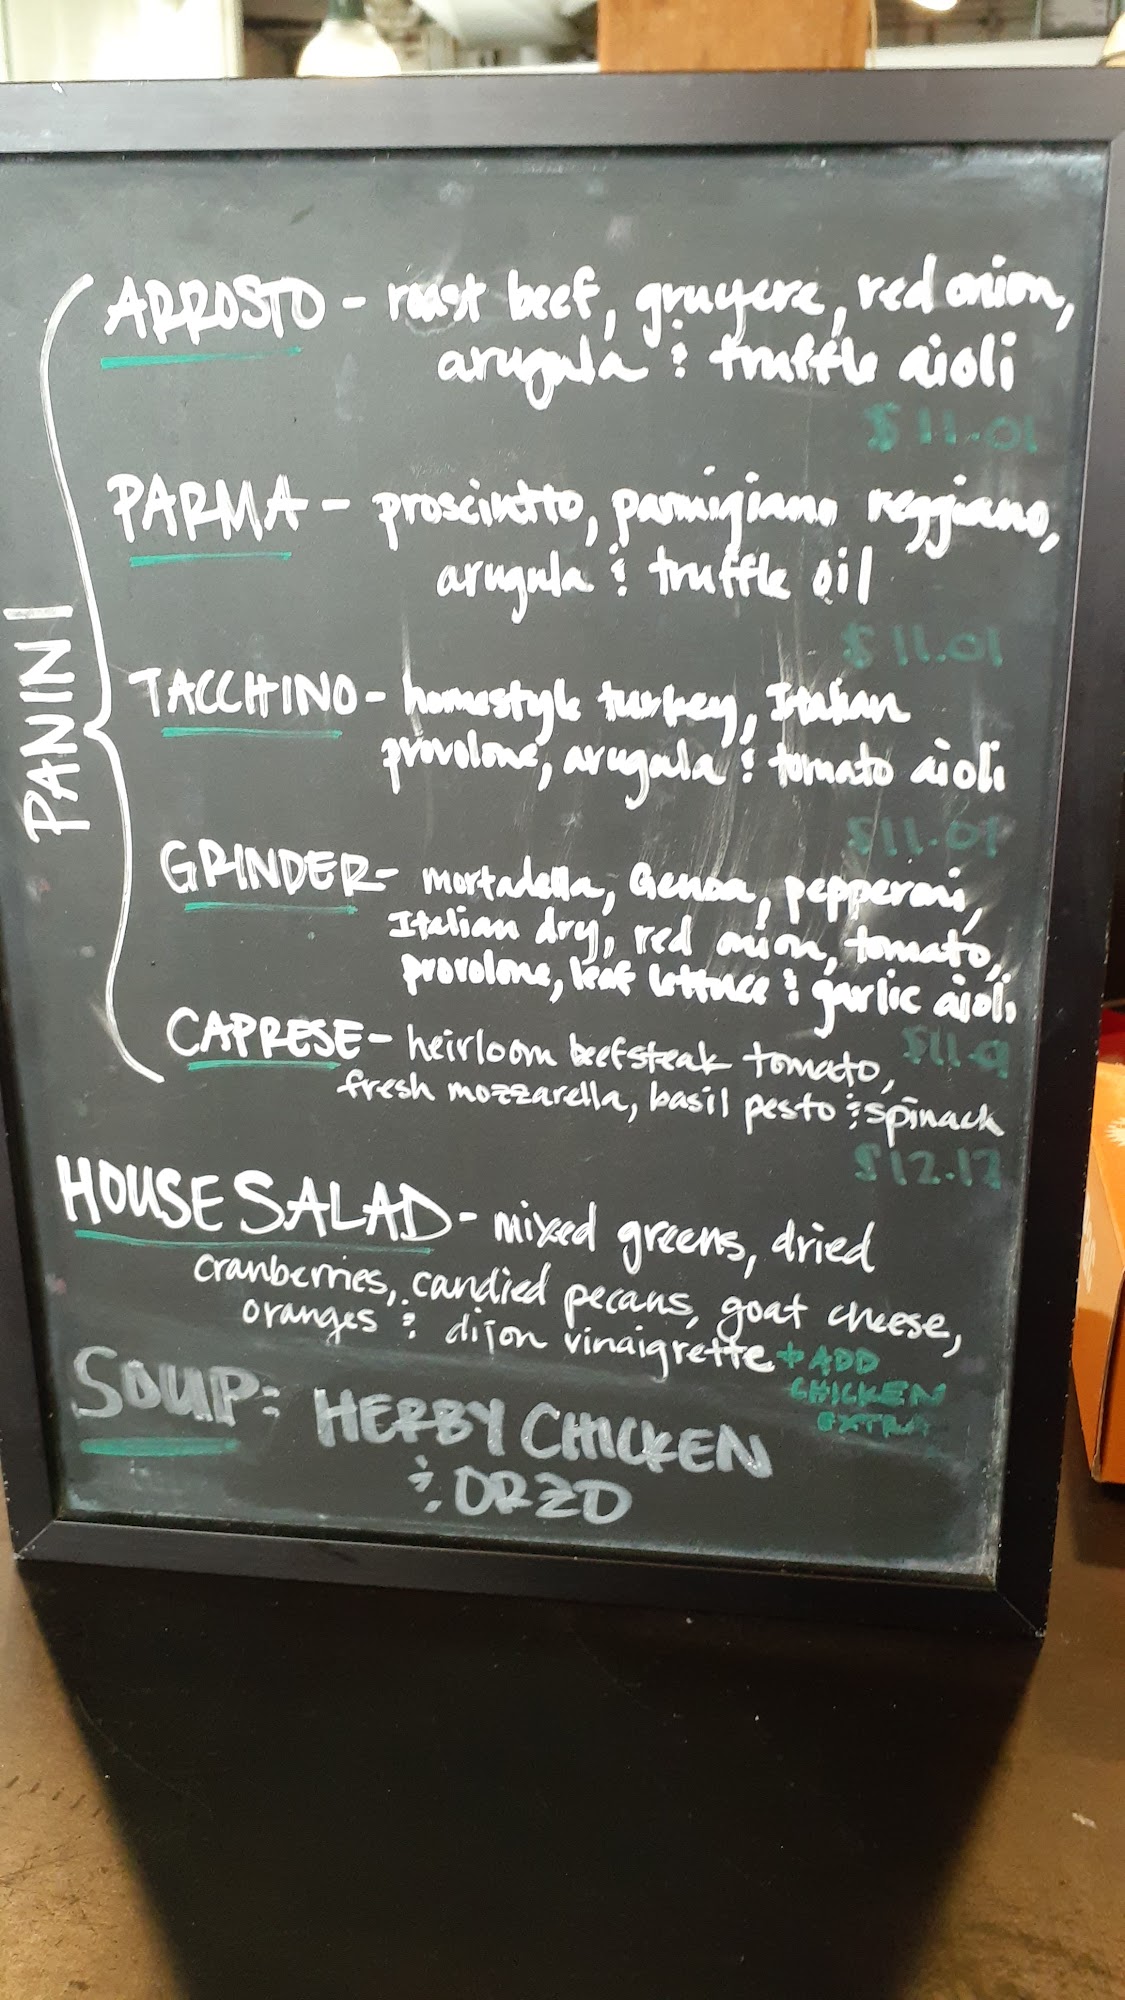 PANINI
ARROSTO - roast beef, gruyere, red onion,
arugula & truffle aioli
$11.01
PARMA - prosciutto, parmigiano reggiano,
arugula & truffle oil
$11.01
TACCHINO - homestyle turkey, Italian
provolone, arugula & tomato aioli
$11.01
GRINDER - mortadella, Genoa, pepperoni,
Italian dry, red onion, tomato,
provolone, leaf lettuce & garlic aioli
CAPRESE - heirloom beefsteak tomato,
fresh mozzarella, basil pesto & spinach
HOUSE SALAD - mixed greens, dried
cranberries, candied pecans, goat cheese,
oranges & dijon vinaigrette + ADD
CHICKEN
EXTRA
SOUP: HERBY CHICKEN
& ORZO